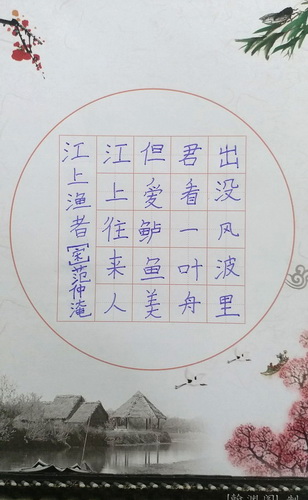 江上渔者[宋]范仲淹
江上往来人
但爱鲈鱼美
君看一叶舟
出没风波里